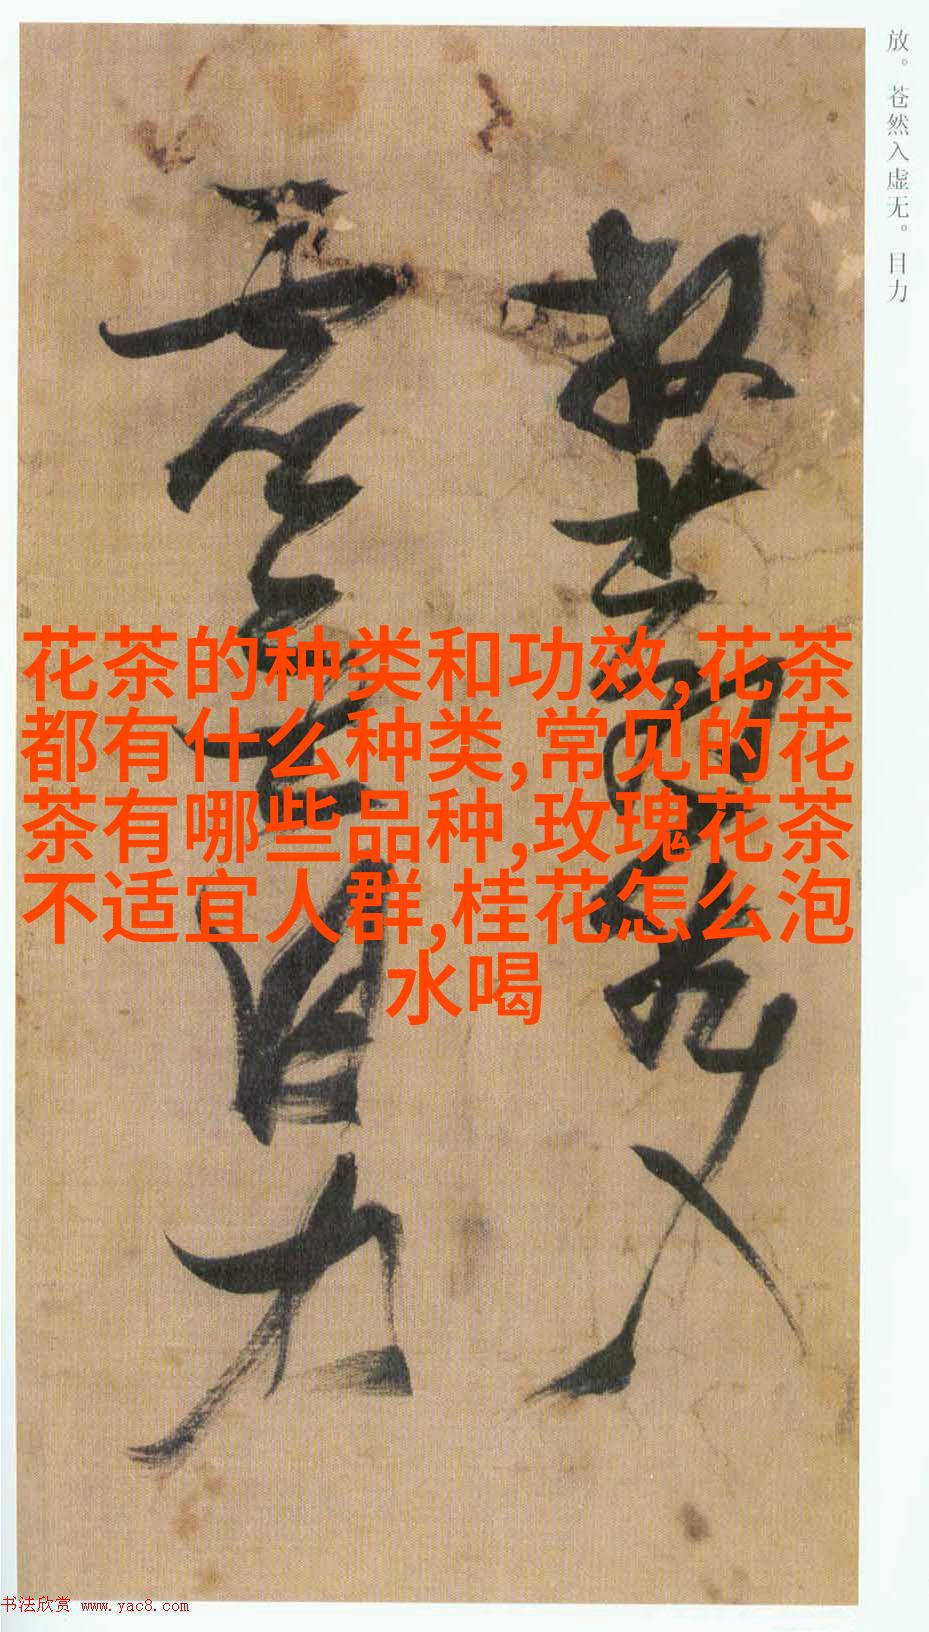 放。苍然入虚无。目力
放苍然入
虚无目力
花茶的种类和功效,花茶
都有什么种类,常见的花
茶有哪些品种,玫瑰花茶
不适宜人群,桂花怎么泡
水喝
书法欣赏 www.yac8.com